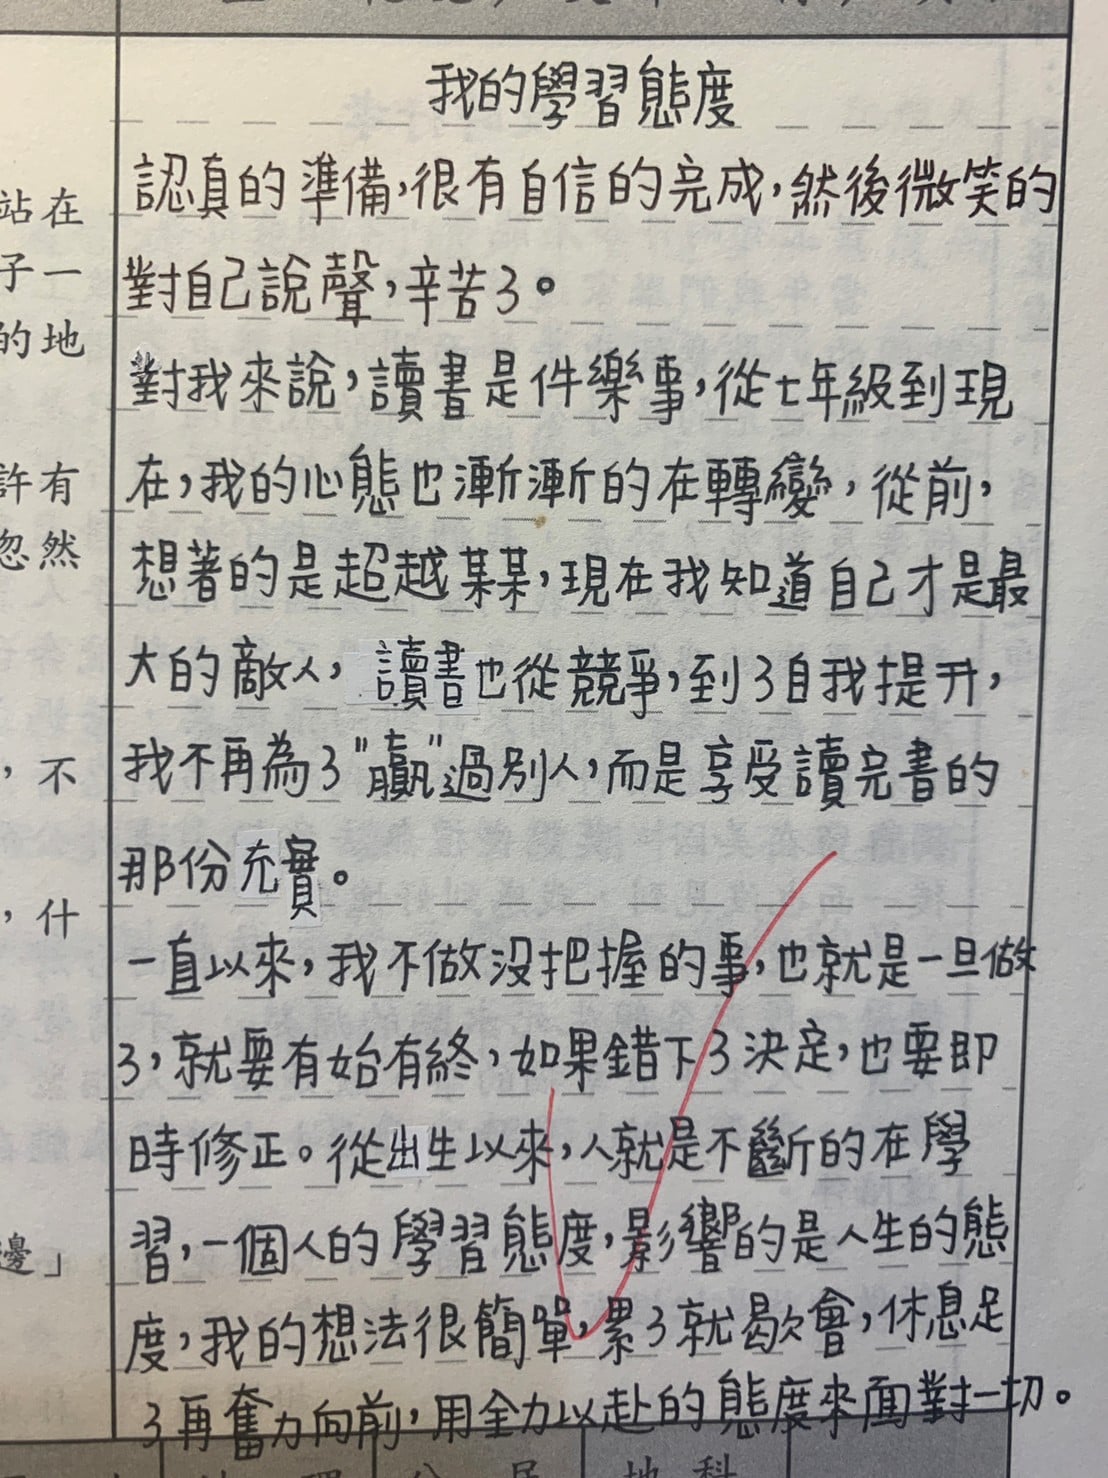 我的學習態度
認真的準備,很有自信的完成,然後微笑的
對自己說聲,辛苦了。
對我來說,讀書是件樂事,從七年級到現
在,我的心態也漸漸的在轉變,從前,
想著的是超越某某,現在我知道自己才是最
大的敵人,讀書也從競爭,到了自我提升,
我不再為了"贏"過別人,而是享受讀完書的
那份充實。
一直以來,我不做沒把握的事,也就是一旦做
了,就要有始有終,如果錯下了決定,也要即
時修正。從出生以來,人就是不斷的在學
習,一個人的學習態度,影響的是人生的態
度,我的想法很簡單,累了就歇會,休息足
了再奮力向前,用全力以赴的態度來面對一切。
站在
子一
的地
許有
忽然
,不
,什
邊」
地科